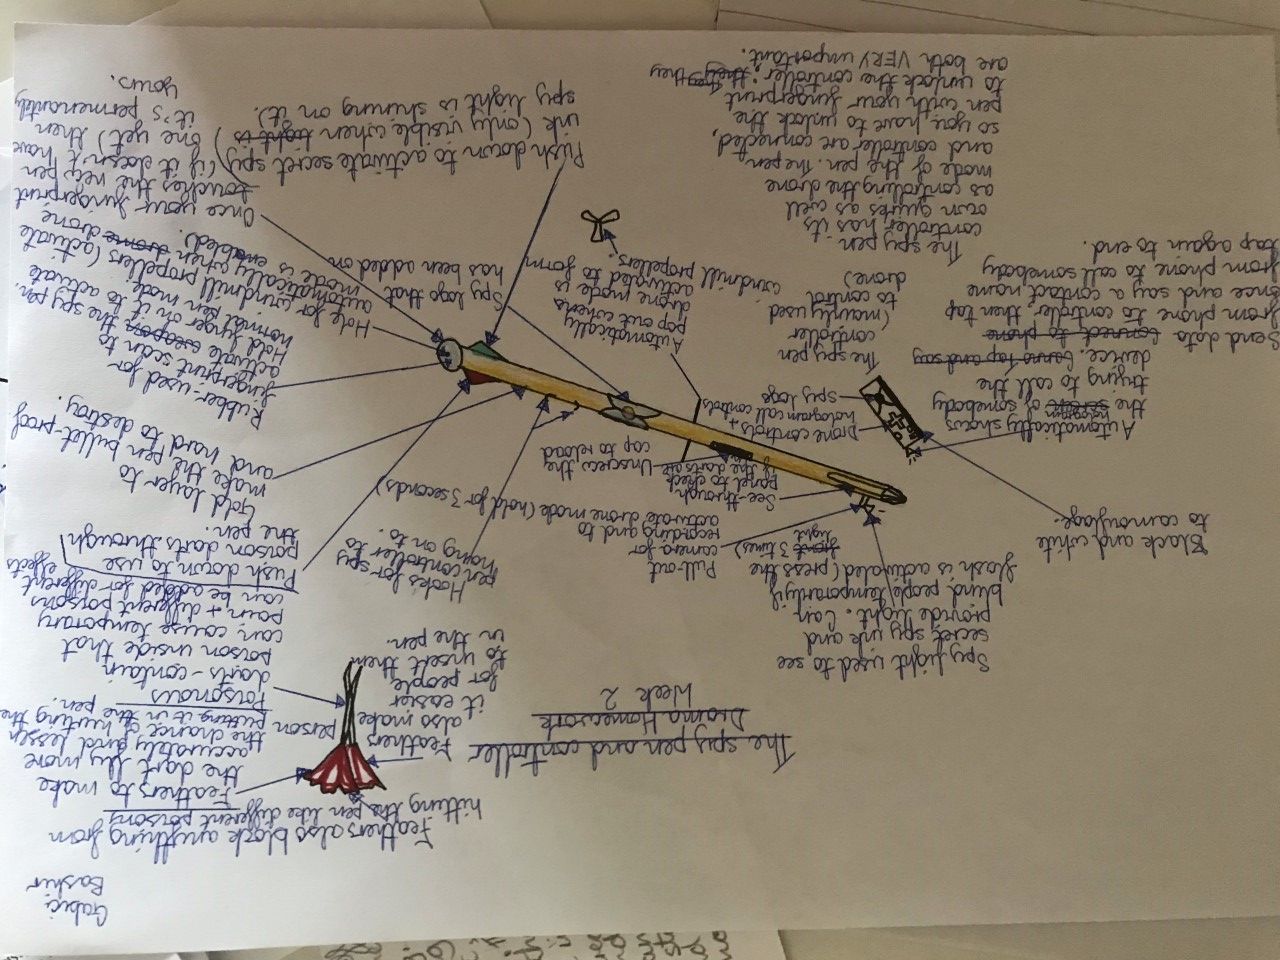 Bashir
The spy pen and controller
Drama Homework
Week 2
Feathers also block anything from
hitting the pen like different poisons
Feathers to make
the dart fly more
accurately and lessen
the chance of hurting the
person putting it in the pen.
Feathers
also make
it easier
for people
to insert them
in the pen.
Poisonous
darts - contain
poison inside that
can cause temporary
pain + different poisons
can be added for different effects
Spy light used to see
secret spy ink and
provide light. Can
blind people temporarily if
flash is activated (press the
light 3 times)
Pull-out
camera for
recording and to
activate drone mode (hold for 3 seconds)
Hooks for spy
pen controller to
hang on to.
Push down to use
poison darts through
the pen.
Black and white
to camouflage.
See-through
panel to check
if the darts are
Unscrew the
cap to reload
Gold layer to
make the pen bullet-proof
and hard to destroy.
Automatically shows
the hologram of somebody
trying to call the
device.
Send data connect to phone
from phone to controller, then tap
once and say a contact name
from phone to call somebody
tap again to end.
Drone controls +
hologram call controls
spy logo
The spy pen
controller
(mainly used
to control
drone)
Automatically
pop out when
drone mode is
activated to form
windmill propellers.
Rubber - used for
fingerprint scan to
activate weapon the spy pen.
Hold finger on it to activate
normal pen mode.
Hole for windmill propellers (activate
automatically when drone
mode is enabled).
Spy logo that
has been added on
The spy pen
controller has its
own quirks as well
as controlling the drone
mode of the pen. The pen
and controller are connected,
so you have to unlock the
pen with your fingerprint
to unlock the controller; they
are both VERY important.
Once your fingerprint
touches the spy pen
(if it doesn't have
one yet) then
it's permenantly
yours.
Push down to activate secret spy
ink (only visible when light is
spy light is shining on it).